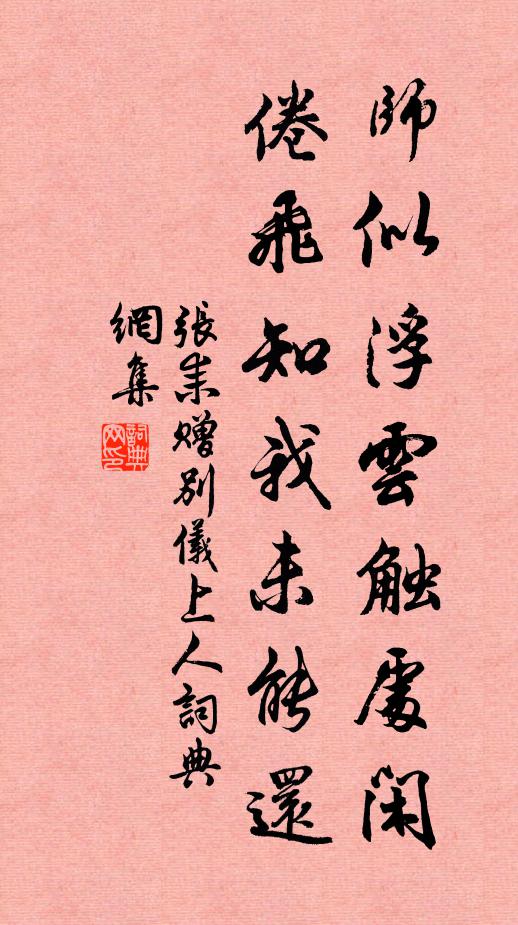 師似浮雲触處閑
倦飛知我未能還
張耒贈別儀上人詞典
網集
詞典網印